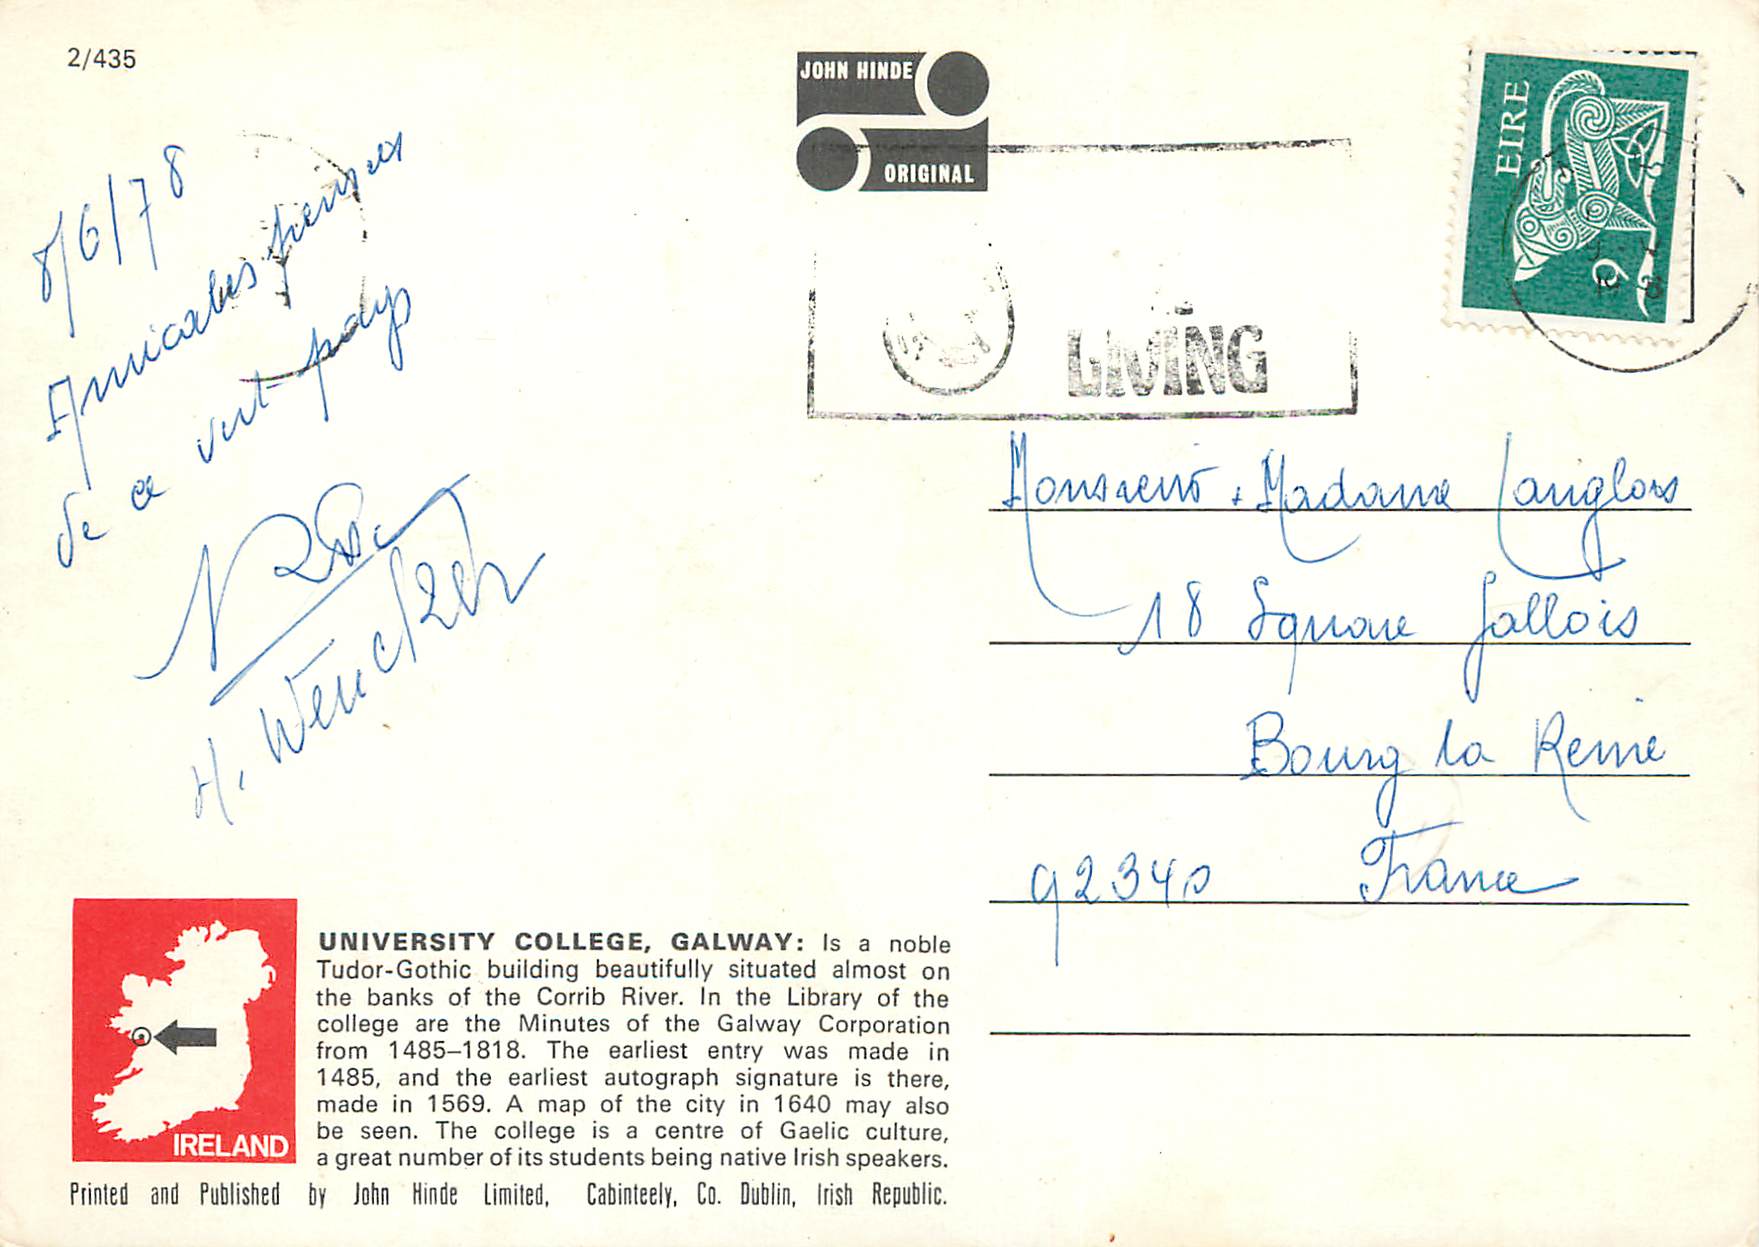 2/435
JOHN HINDE
ORIGINAL
EIRE
9
LIVING
8/6/78
Amicales pensées
de ce vert pays
H. Wenckzel
Monsieur + Madame Langlois
18 Square Gallois
Bourg la Reine
92340 France
IRELAND
UNIVERSITY COLLEGE, GALWAY: Is a noble
Tudor-Gothic building beautifully situated almost on
the banks of the Corrib River. In the Library of the
college are the Minutes of the Galway Corporation
from 1485–1818. The earliest entry was made in
1485, and the earliest autograph signature is there,
made in 1569. A map of the city in 1640 may also
be seen. The college is a centre of Gaelic culture,
a great number of its students being native Irish speakers.
Printed and Published by John Hinde Limited, Cabinteely, Co. Dublin, Irish Republic.